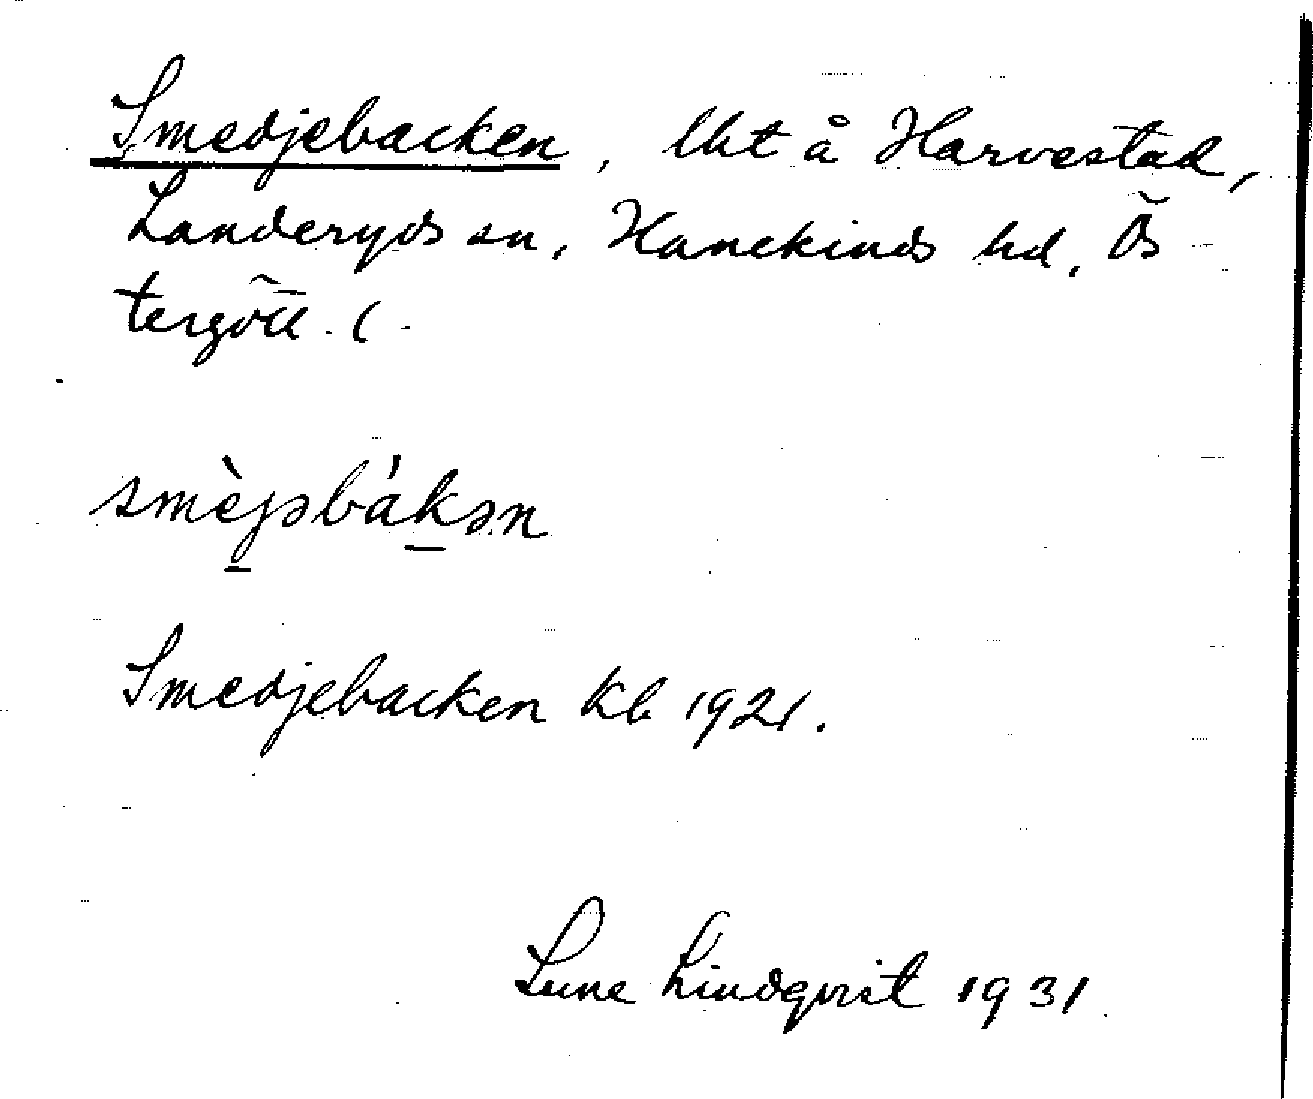 Smedjebacken, lht å Harvestad,
Landeryds sn, Hanekinds hd, Ös-
tergötl. l.
smὲjəbákən
Smedjebacken Kb 1921.
Sune Lindqvist 1931.